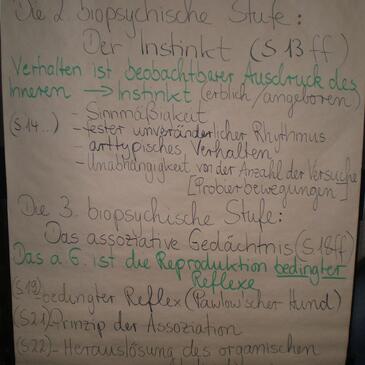 Die 2. biopsychische Stufe:
Der Instinkt (S 13 ff)
Verhalten ist beobachtbarer Ausdruck des
Inneren → Instinkt (erblich/angeboren)
- Sinnmäßigkeit
(S 14...) - fester unveränderlicher Rhythmus
- arttypisches Verhalten
- Unabhängigkeit von der Anzahl der Versuche
[Probierbewegungen]
Die 3. biopsychische Stufe:
Das assoziative Gedächtnis (S 18ff)
Das a. G. ist die Reproduktion bedingter
Reflexe
(S 19) bedingter Reflex (Pawlow'scher Hund)
(S 21) - Prinzip der Assoziation
(S 22) - Herauslösung des organischen